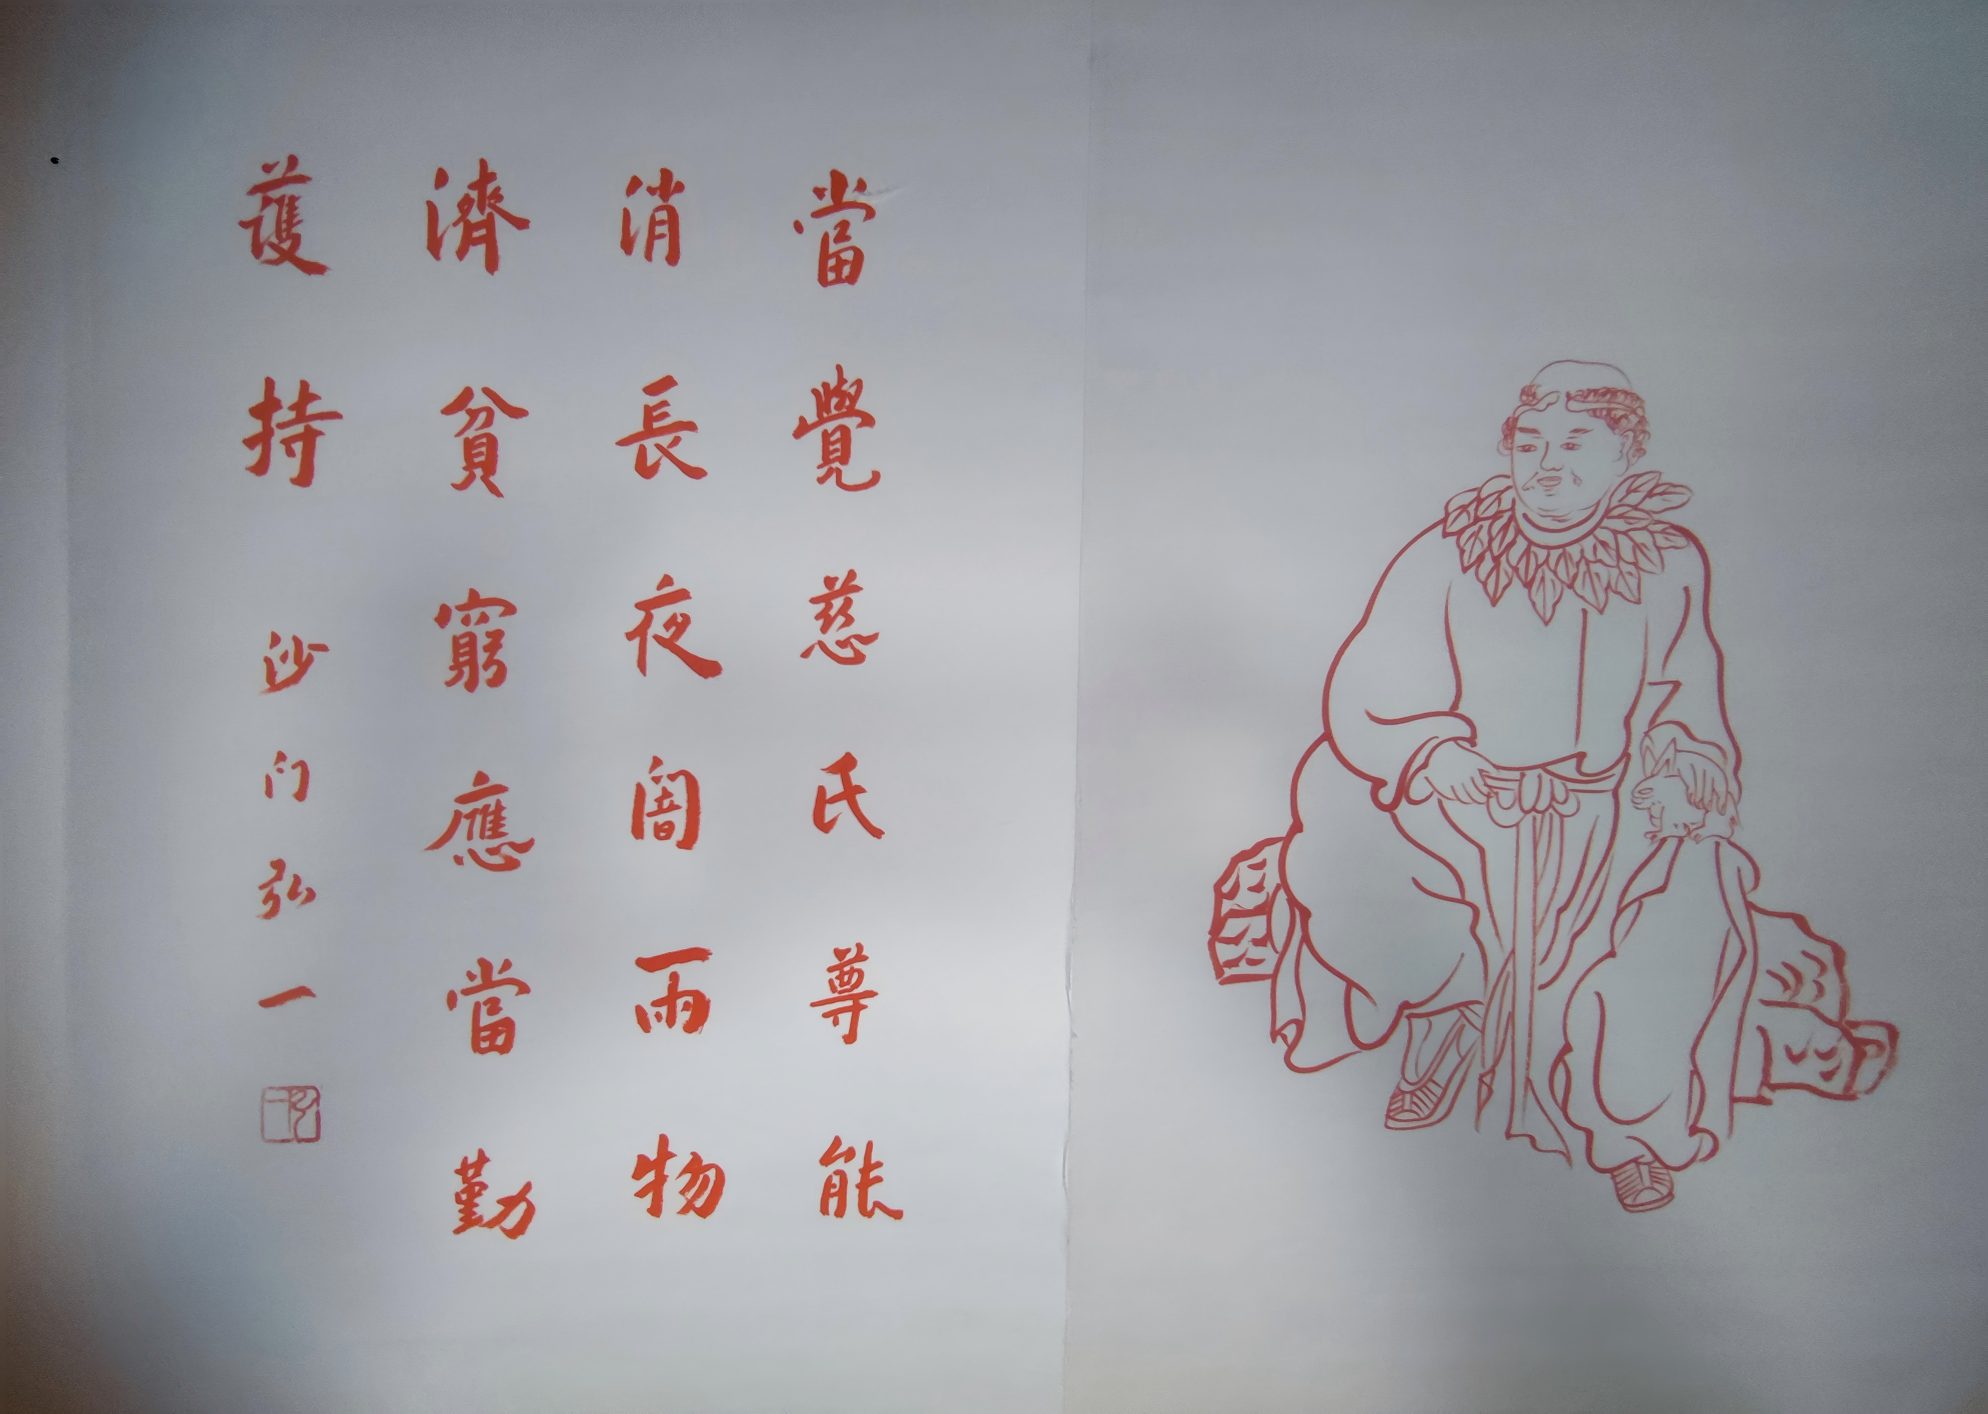 當覺慈氏尊能
消長夜闇雨物
濟貧窮應當勤
護持
沙门弘一
弘一